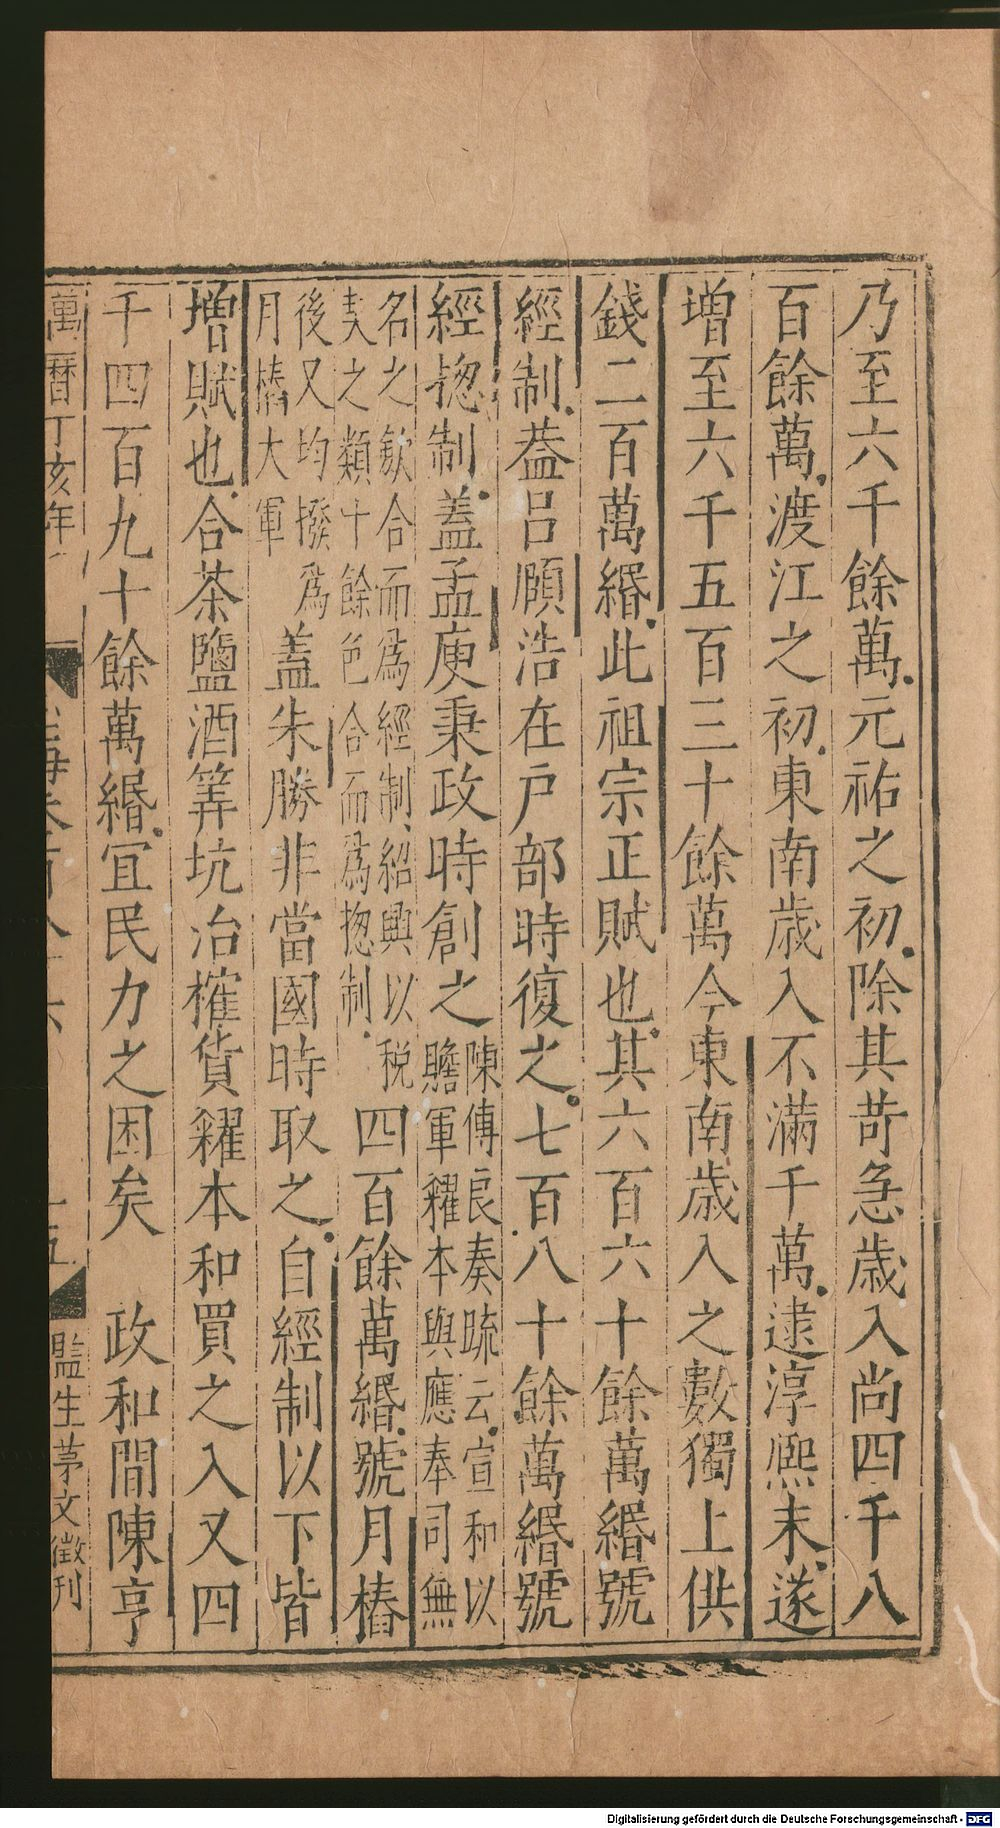 乃至六千餘萬元祐之初除其苛急歲入尚四千八
百餘萬渡江之初東南歲入不滿千萬逮淳熈末遂
增至六千五百三十餘萬今東南歲入之數獨上供
錢二百萬緡此祖宗正賦也其六百六十餘萬緡號
經制葢呂頤浩在戶部時復之七百八十餘萬緡號
經揔制蓋孟庾秉政時創之
陳傅良奏疏云宣和以
贍軍糴本與應奉司無
名之歛合而爲經制紹興以稅
契之類十餘色合而爲揔制
四百餘萬緡號月樁
後又均撥爲
月樁大軍
蓋朱勝非當國時取之自經制以下皆
增賦也合茶鹽酒筭坑冶榷貨糴本和買之入又四
千四百九十餘萬緡宜民力之困矣 政和間陳亨
萬曆丁亥年
監生茅文徵刊
Digitalisierung gefördert durch die Deutsche Forschungsgemeinschaft - DFG